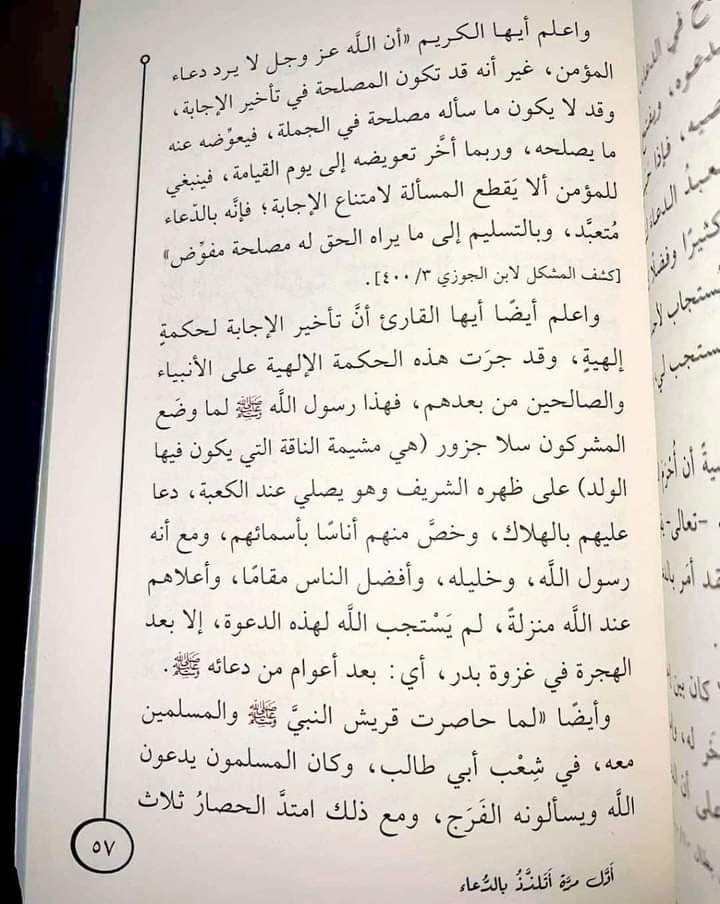 واعلم أيها الكريم «أن اللَّه عز وجل لا يرد دعاء
المؤمن، غير أنه قد تكون المصلحة في تأخير الإجابة،
وقد لا يكون ما سأله مصلحة في الجملة، فيعوِّضه عنه
ما يصلحه، وربما أخَّر تعويضه إلى يوم القيامة، فينبغي
للمؤمن ألا يَقطع المسألة لامتناع الإجابة؛ فإنَّه بالدّعاء
مُتعبَّد، وبالتسليم إلى ما يراه الحق له مصلحة مفوِّض»
[كشف المشكل لابن الجوزي ٣/ ٤٠٠].
واعلم أيضًا أيها القارئ أنَّ تأخير الإجابة لحكمةٍ
إلهيةٍ، وقد جرَت هذه الحكمة الإلهية على الأنبياء
والصالحين من بعدهم، فهذا رسول اللَّه ﷺ لما وضَع
المشركون سلا جزور (هي مشيمة الناقة التي يكون فيها
الولد) على ظهره الشريف وهو يصلي عند الكعبة، دعا
عليهم بالهلاك، وخصَّ منهم أناسًا بأسمائهم، ومع أنه
رسول اللَّه، وخليله، وأفضل الناس مقامًا، وأعلاهم
عند اللَّه منزلةً، لم يَسْتجب اللَّه لهذه الدعوة، إلا بعد
الهجرة في غزوة بدر، أي: بعد أعوام من دعائه ﷺ.
وأيضًا «لما حاصرت قريش النبيَّ ﷺ والمسلمين
معه، في شِعْب أبي طالب، وكان المسلمون يدعون
اللَّه ويسألونه الفَرَج، ومع ذلك امتدَّ الحصارُ ثلاث
٥٧
أوَّل مرَّة أتلذَّذُ بالدُّعاء